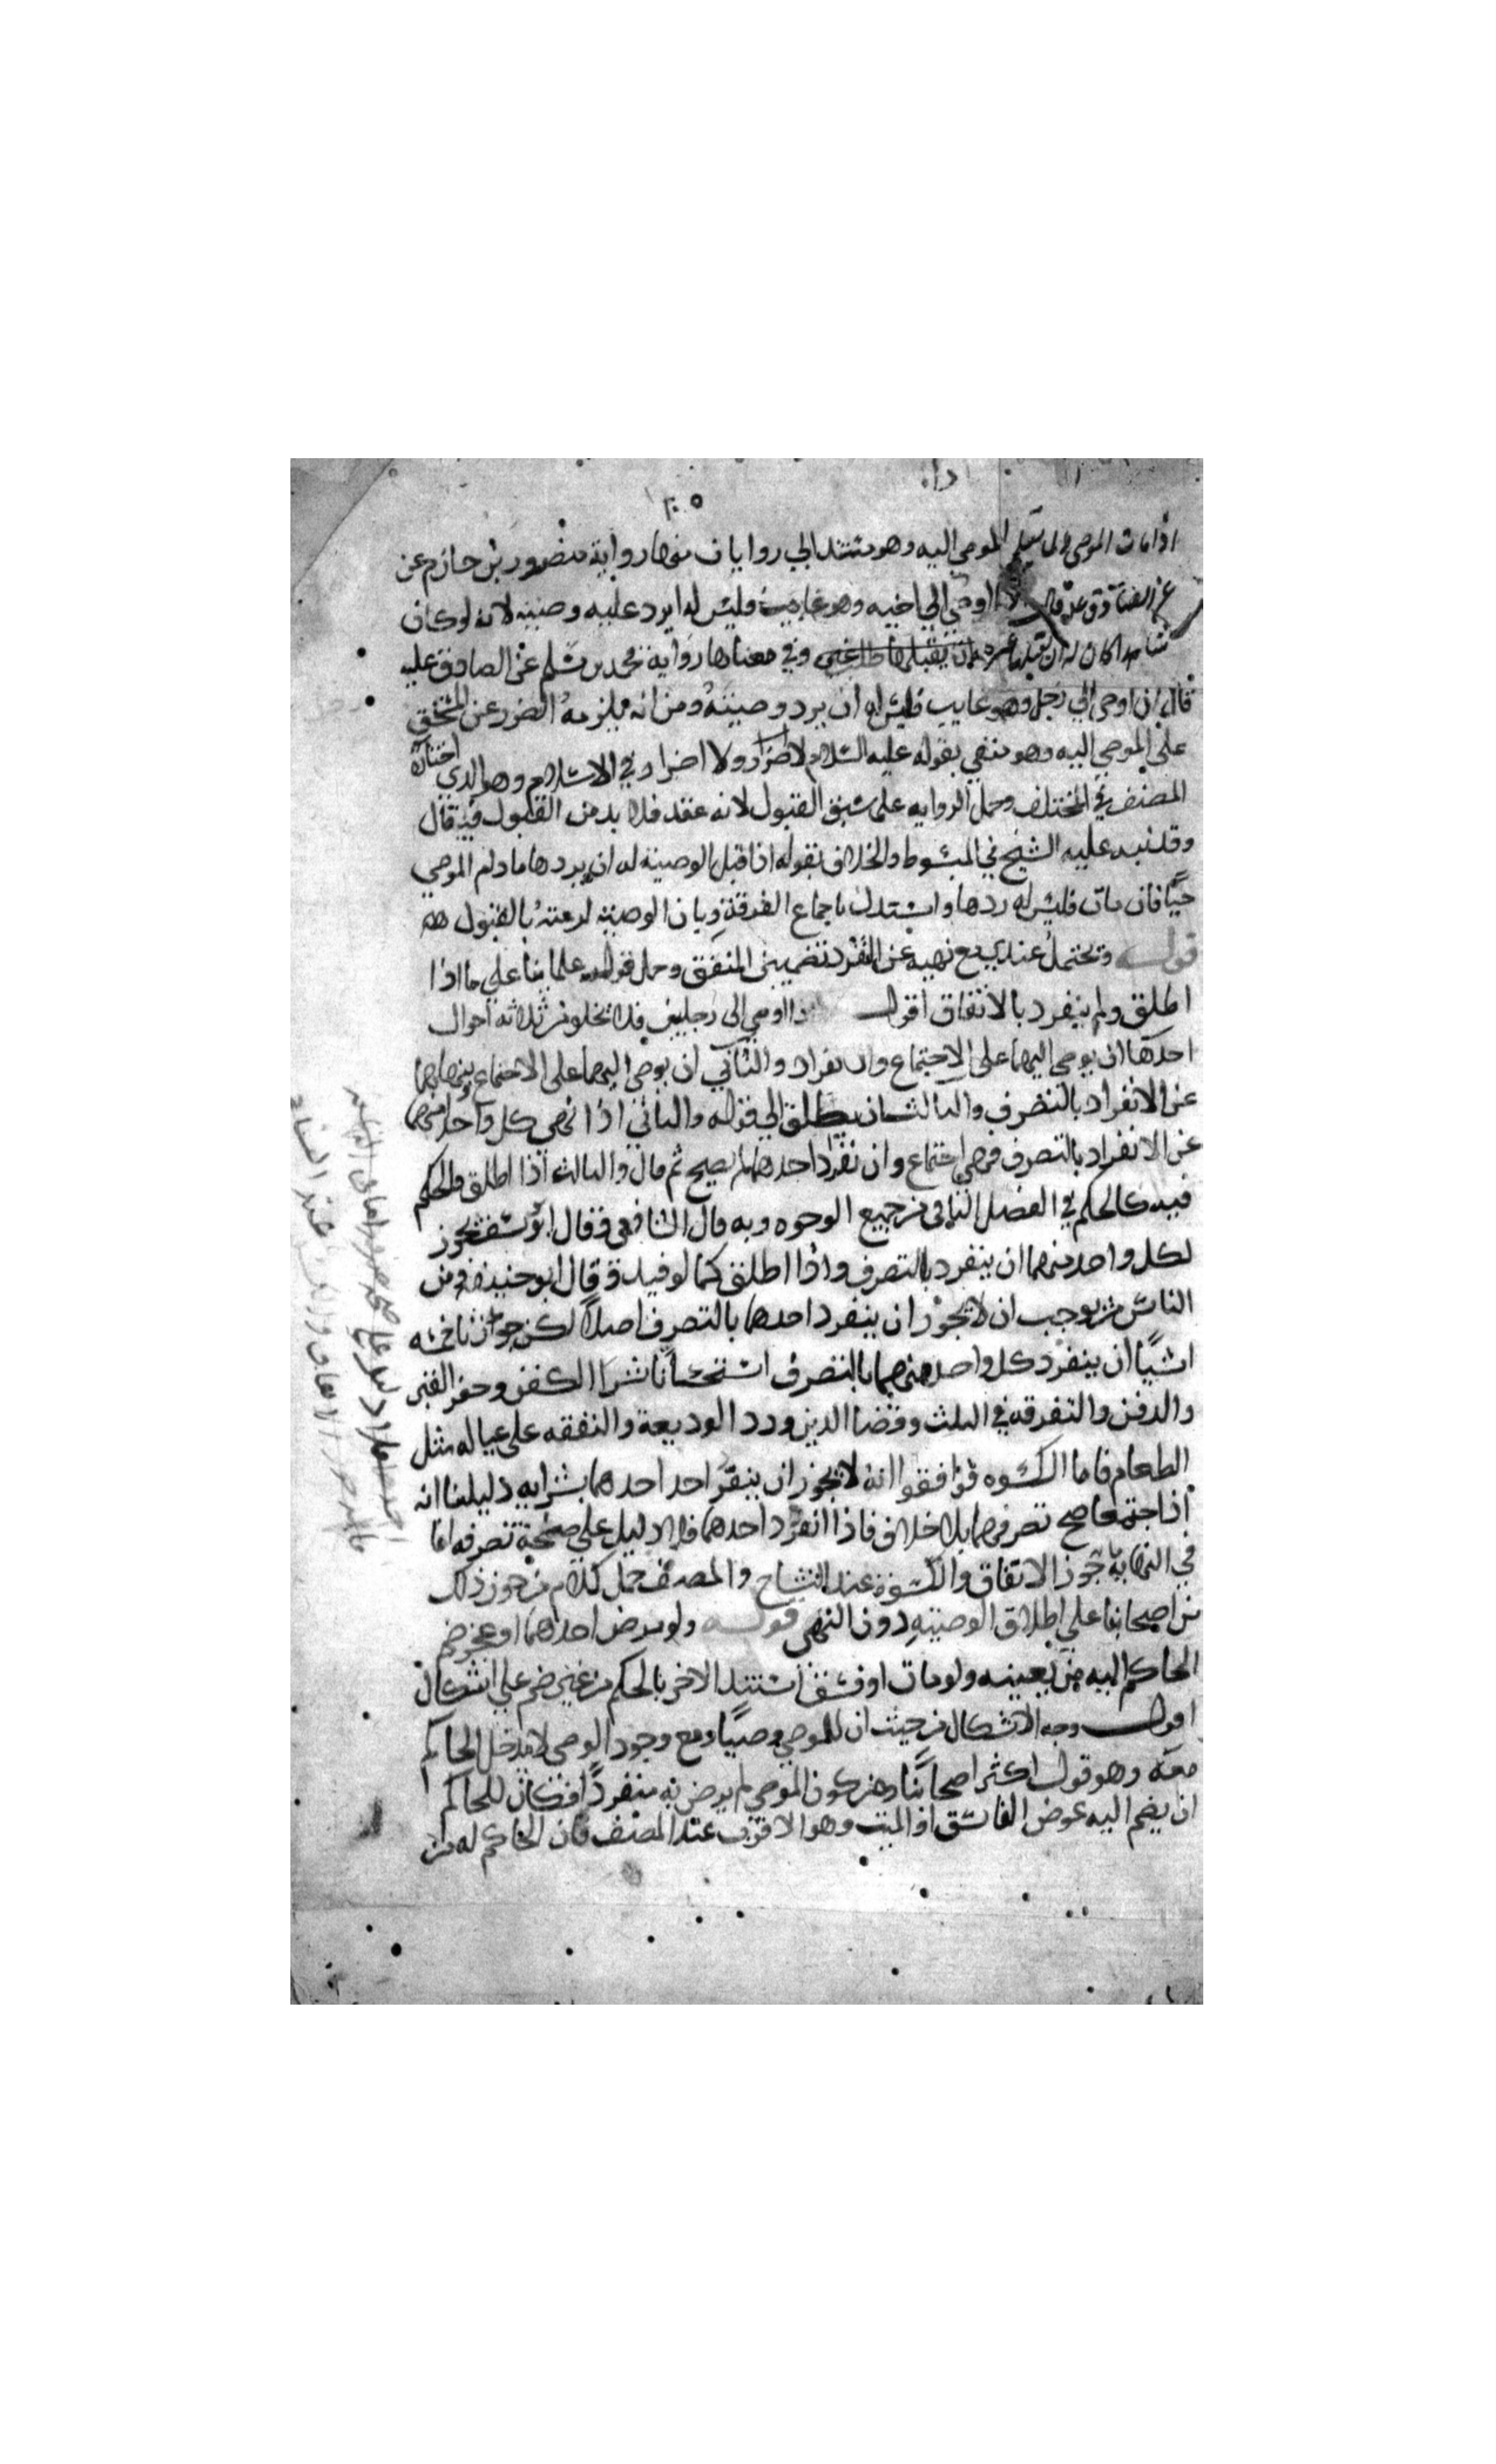 اذا مات الموصى ولما يعلم الموصى اليه وهو مستند الى روايات منها رواية منصور بن حازم عن
عن الصادق قال اذا اوصى الى اخيه وهو غايب فليس له ان يرد عليه وصيته لانه لو كان
شاهدا كان له ان يقبلها وفي معناها رواية محمد بن مسلم عن الصادق عليه
قال ان اوصى الى رجل وهو غايب فليس له ان يرد وصيته ومن انه يلزمه الضرر عن المستحق
على الموصي اليه وهو منفي بقوله عليه السلام لا ضرر ولا اضرار في الاسلام وهو الذي اختاره
المصنف في المختلف وحمل الروايه على سبق القبول لانه عقد فلا بد من القبول فيه قال
وقد نبه عليه الشيخ في المبسوط والخلاف بقوله اذا قبل الوصية له ان يردها مادام الموصي
حيًا فان مات فليس له ردها واستدل باجماع الفرقة وبان الوصية لزمته بالقبول
قوله ويحتمل عندي مع نهيه عن التفرد تضمين المنفق وحمل قول علمائنا على ما اذا
اطلق ولم ينفرد بالاتفاق اقول اذا اوصى الى رجلين فلا يخلو من ثلاثه احوال
احدها ان يوصي اليهما على الاجتماع والانفراد والثاني ان يوصي اليهما على الاجتماع وينهاهما
عن الانفراد بالتصرف والثالث ان يطلق الى قوله والثاني اذا نهى كل واحد منهما
عن الانفراد بالتصرف فمتى اجتماع وان تفرد احدهما لم يصح ثم قال والثالث اذا اطلق فالحكم
فيه كالحكم في الفصل الثاني من جميع الوجوه وبه قال الشافعي وقال ابو يوسف يجوز
لكل واحد منهما ان ينفرد بالتصرف واذا اطلق كما لو قيد وقال ابو حنيفه ومن
الناس من يوجب ان لا يجوز ان ينفرد احدهما بالتصرف اصلا لكن جوزنا خمسه
اشيا ان ينفرد كل واحد منهما بالتصرف استحسانا شرا الكفن وحفر القبر
والدفن والتفرقه في الثلث وقضا الدين ورد الوديعة والنفقه على عياله مثل
الطعام فاما الكسوه فوافقوا انه لا يجوز ان ينفرد احد احدهما بشرايه دليلنا انه
اذا اجتمعا صح تصرفهما بلا خلاف فاذا انفرد احدهما فلا دليل على صحة تصرفه اما
في النهاية جوز الانفاق والكسوة عند التشاح والمصنف حمل كلام من جوز ذلك
من اصحابنا على اطلاق الوصية دون النهى قوله ولو مرض احدهما او عجز ضم
الحاكم اليه من يعينه ولو مات او فسق استند الاخر بالحكم من غير ضم على اشكال
اقول وجه الاشكال من حيث ان للموصي وصيًا ومع وجود الوصي لا مدخل للحاكم
معه وهو قول اكثر اصحابنا ومن كون الموصي لم يرض به منفردًا فكان للحاكم
ان يضم اليه عوض الفاسق او الميت وهو الاقرب عند المصنف فان الحاكم له من